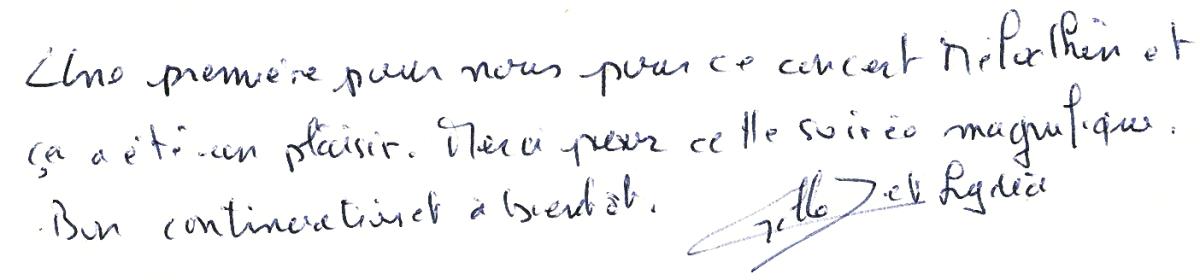 Une première pour nous pour ce concert Mélothien et
ça a été un plaisir. Merci pour cette soirée magnifique.
Bon continuation et à bientôt.
et Lydia